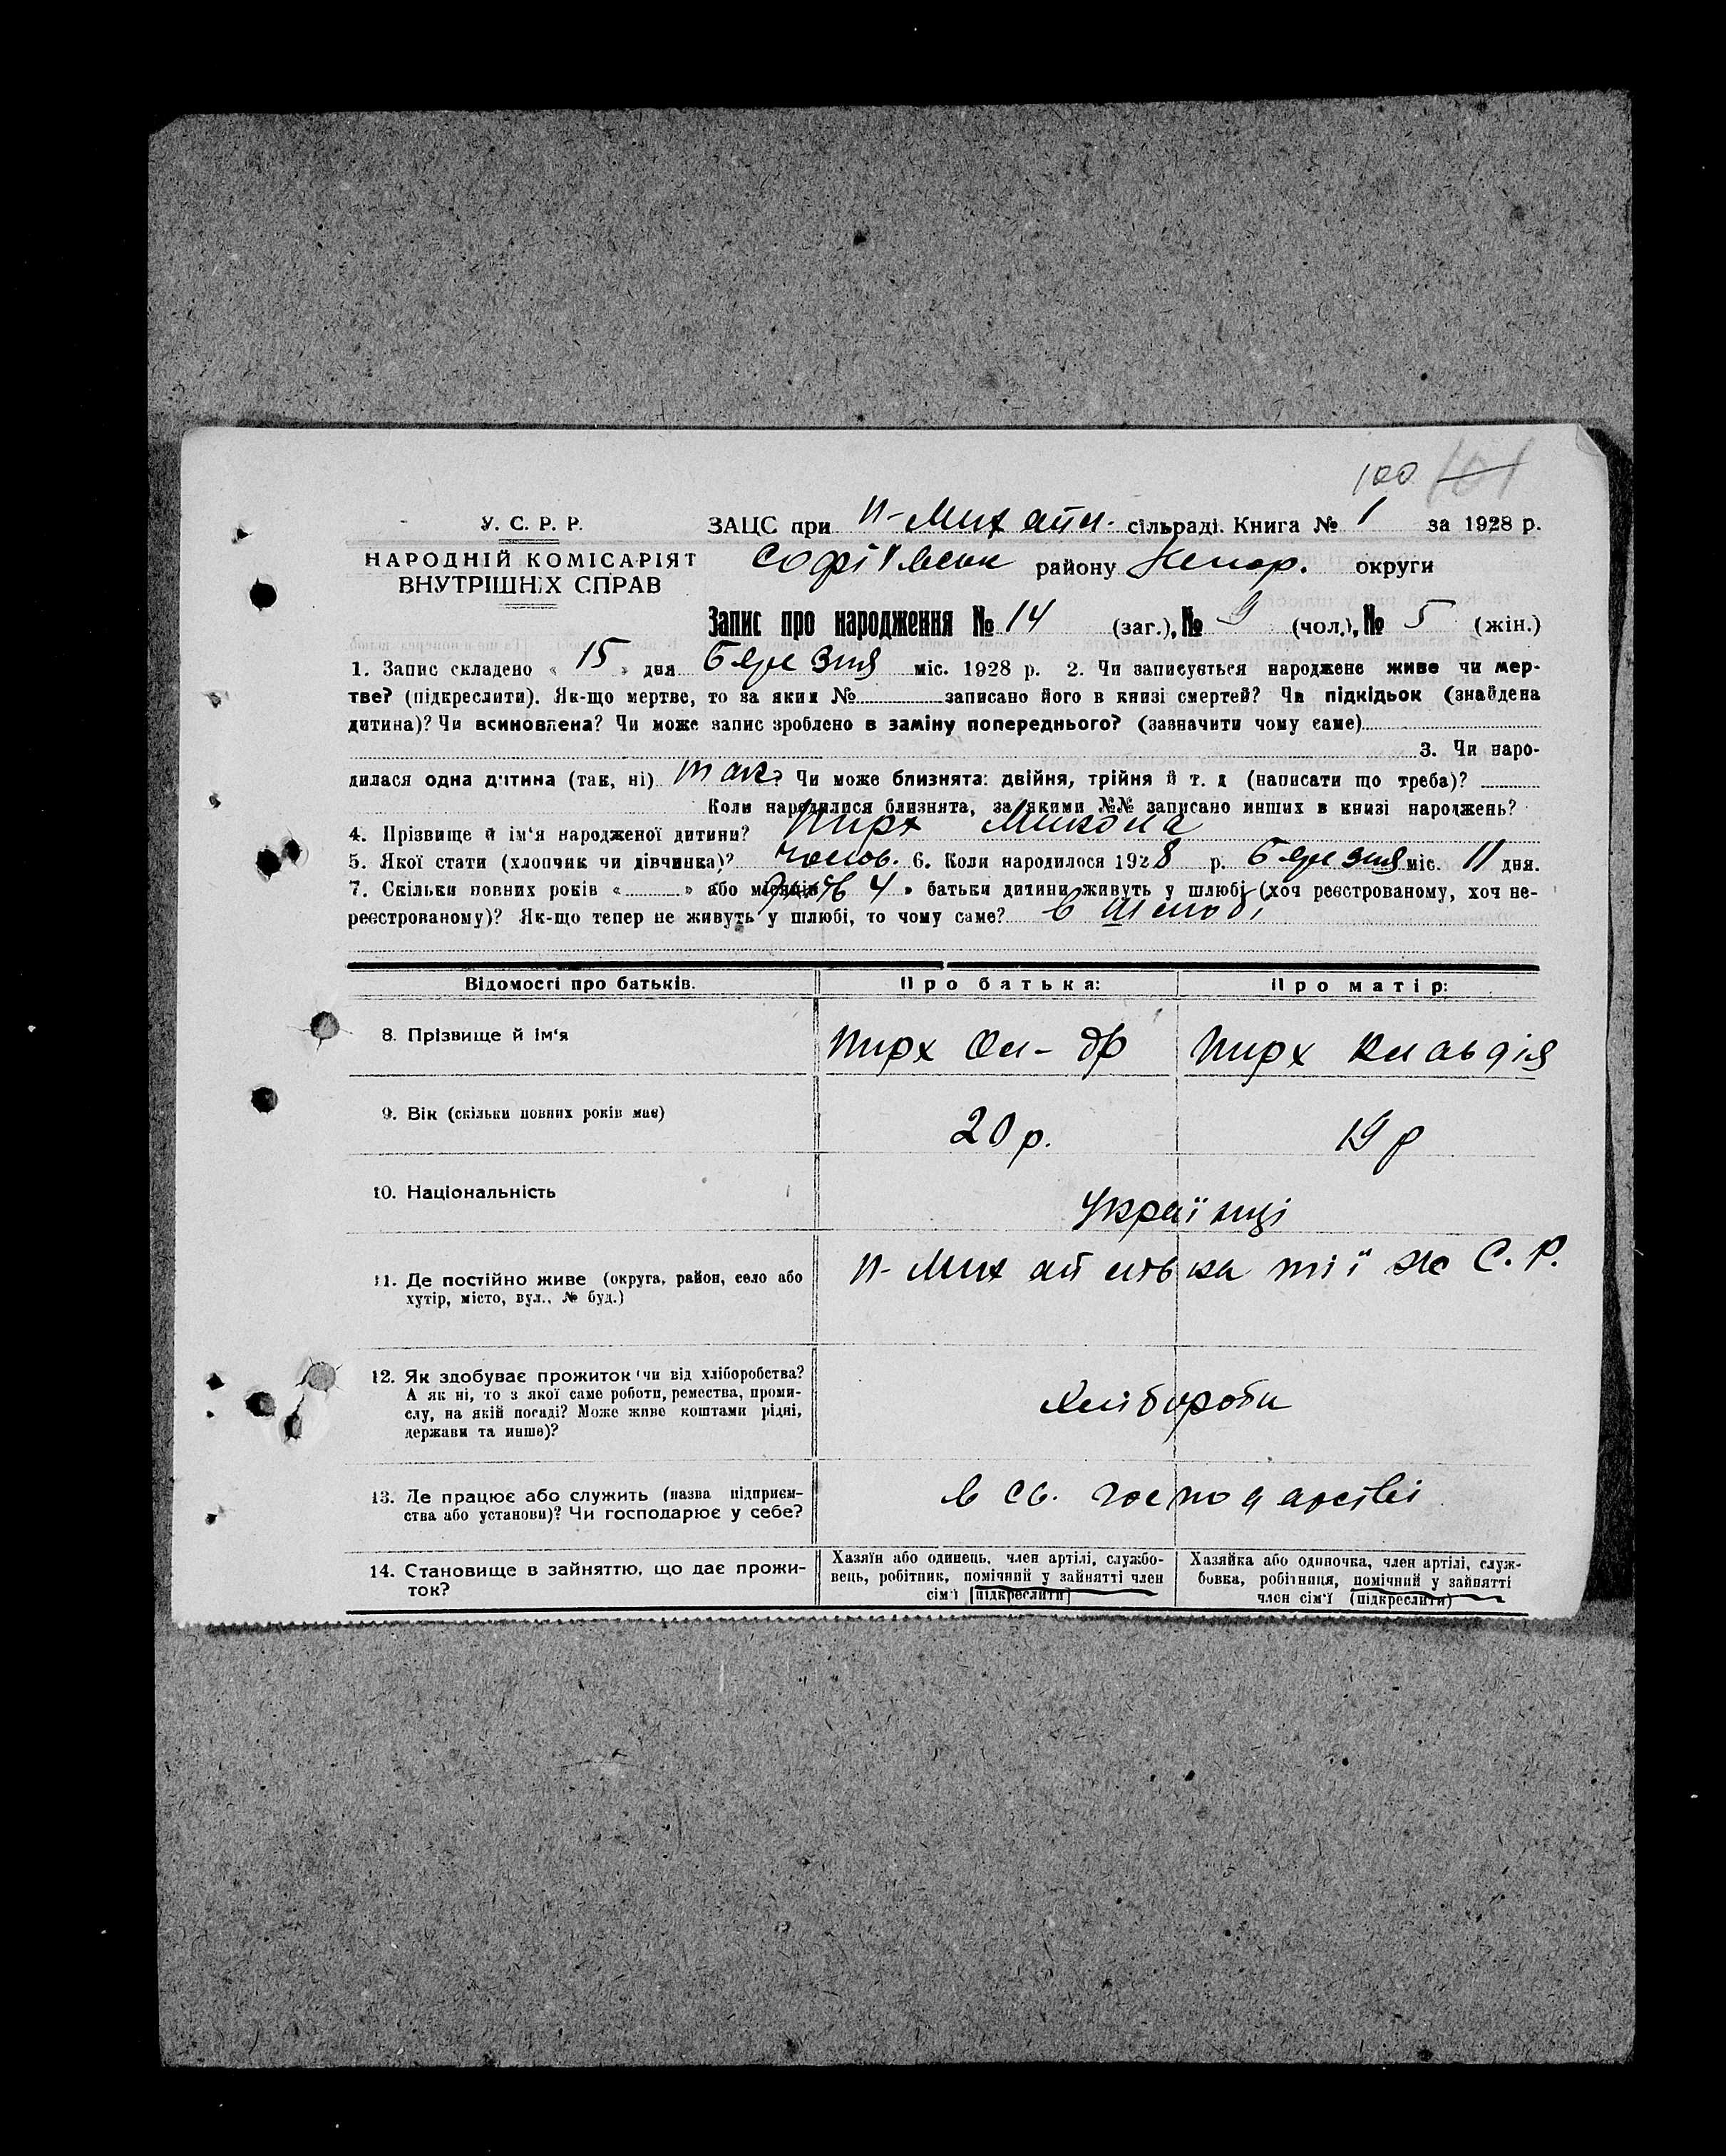 100 101
У. С. Р. Р.
НАРОДНІЙ КОМІСАРІЯТ
ВНУТРІШНІХ СПРАВ
ЗАЦС при Н-Михайл. сільраді. Книга № 1 за 1928 р.
Софіївськ району округи
Запис про народження № 14 (заг.), № 9 (чол.), № 5 (жін.)
1. Запис складено « 15 » дня Березня міс. 1928 р. 2. Чи записується народжене живе чи мер-
тве? (підкреслити). Як-що мертве, то за яким № записано його в книзі смертей? Чи підкідьок (знайдена
дитина)? Чи всиновлена? Чи може запис зроблено в заміну попереднього? (зазначити чому саме)
3. Чи наро-
дилася одна дитина (так, ні) так Чи може близнята: двійня, трійня й т. д (написати що треба)?
Коли народилися близнята, за якими №№ записано инших в книзі народжень?
4. Прізвище й ім‘я народженої дитини? Пирх Микола
5. Якої стати (хлопчик чи дівчинка)? чолов. 6. Коли народилося 1928 р. Березня міс. 11 дня.
7. Скільки повних років « » або місяців 4 » батьки дитини живуть у шлюбі (хоч реєстрованому, хоч не-
реєстрованому)? Як-що тепер не живуть у шлюбі, то чому саме? в шлюбі
Відомості про батьків. Про батька: Про матір:
8. Прізвище й ім‘я Пирх Ол-др Пирх Клавдія
9. Вік (скільки повних років має) 20 р. 19 р
10. Національність Українці
11. Де постійно живе (округа, район, село або
хутір, місто, вул., № буд.)
Н-Михайлівка тії ж С. Р.
12. Як здобуває прожиток чи від хліборобства?
А як ні, то з якої саме роботи, ремества, проми-
слу, на якій посаді? Може живе коштами рідні,
держави та инше)?
Хлібороби
13. Де працює або служить (назва підприєм-
ства або установи)? Чи господарює у себе?
в св. господарстві
14. Становище в зайняттю, що дає прожи-
ток?
Хазяїн або одинець, член артілі, службо-
вець, робітник, помічний у зайнятті член
сім‘ї (підкреслити)
Хазяйка або одиночка, член артілі, служ-
бовка, робітниця, помічний у зайнятті
член сім‘ї (підкреслити)